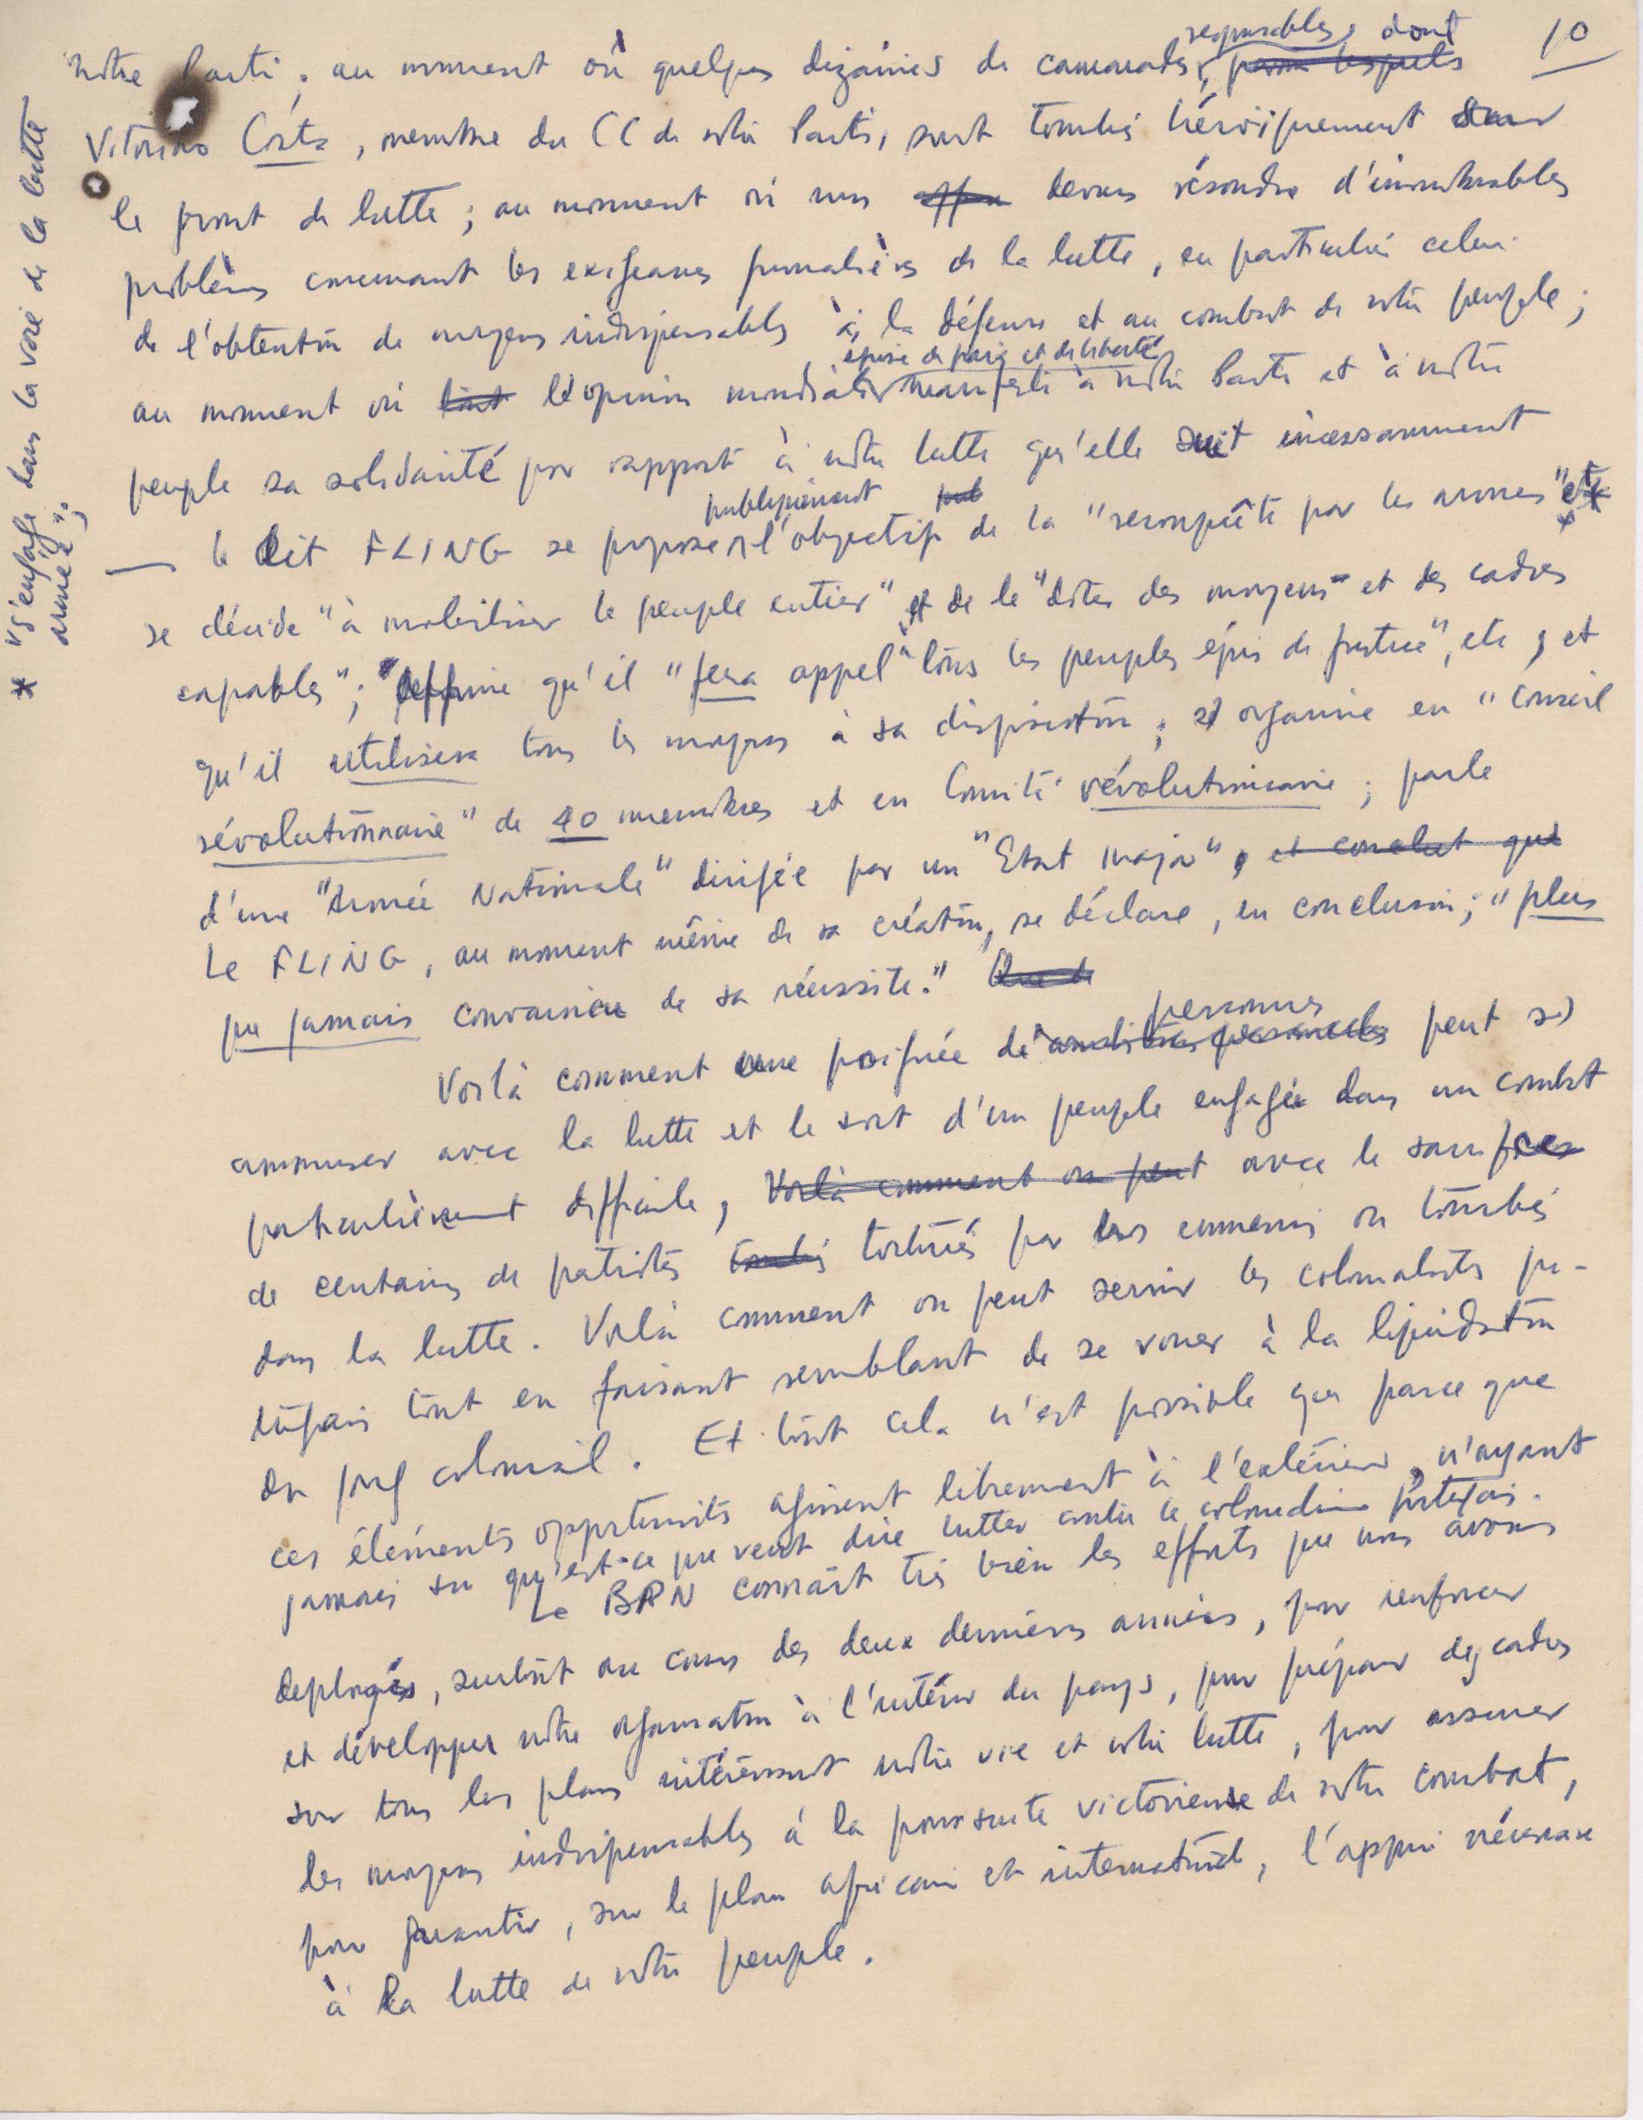 10
responsables, dont
notre Parti ; au moment où quelques dizaines de camarades, parmi lesquels
Vitorino Costa, membre du CC de notre Parti, sont tombés héroïquement sur
le front de lutte ; au moment où nous devons résoudre d'innombrables
problèmes concernant les exigeances journalières de la lutte, en particulier celui
de l'obtention de moyens indispensables à la défense et au combat de notre peuple ;
éprise de paix et de liberté
au moment où tout l'opinion mondiale manifeste à notre Parti et à notre
peuple sa solidarité par rapport à notre lutte qu'elle suit incessamment
publiquement pub
— le dit FLING se propose l'objectif de la "reconquête par les armes" et *
se décide "à mobiliser le peuple entier" et de le "doter des moyens et des cadres
capables" ; affirme qu'il "fera appel à tous les peuples épris de justice", etc, et
qu'il utilisera tous les moyens à sa disposition ; s'organise en "Conseil
révolutionnaire" de 40 membres et en Comité révolutionnaire ; parle
d'une "Armée Nationale" dirigée par un "Etat Major", et conclut que
Le FLING, au moment même de sa création, se déclare, en conclusion, "plus
que jamais convaincu de sa réussite."
personnes
Voilà comment une poignée de ambitieux personnels peut s'
ammuser avec la lutte et le sort d'un peuple engagée dans un combat
particulièrement difficile, Voilà comment on peut avec le sacrifice
de centaines de patriotes tombés torturés par les ennemis ou tombés
dans la lutte. Voilà comment on peut servir les colonialistes por-
tugais tout en faisant semblant de se vouer à la liquidation
du joug colonial. Et tout cela n'est possible que parce que
ces éléments opportunistes agissent librement à l'extérieur, n'ayant
jamais su qu'est-ce que veut dire lutter contre le colonialisme portugais.
Le BPN connaît très bien les efforts que nous avons
deployés, surtout au cours des deux dernières années, pour renforcer
et développer notre organisation à l'intérieur du pays, pour préparer des cadres
sur tous les plans intéressant notre vie et notre lutte, pour assurer
les moyens indispensables à la poursuite victorieuse de notre combat,
pour garantir, sur le plan africain et international, l'appui nécessaire
à la lutte de notre peuple.
* "s'engage dans la voie de la lutte
armée" ;